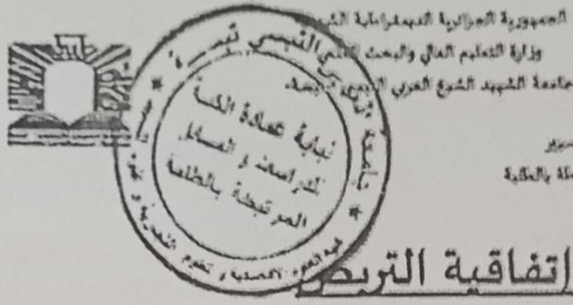 الجمهورية الجزائرية الديمقراطية
وزارة التعليم العالي والبحث العلمي
جامعة الشهيد الشيخ العربي التبسي تبسة
بالطلبة
نيابة عمادة الكلية
للدراسات و المسائل
المرتبطة بالطلبة
اتفاقية التربص